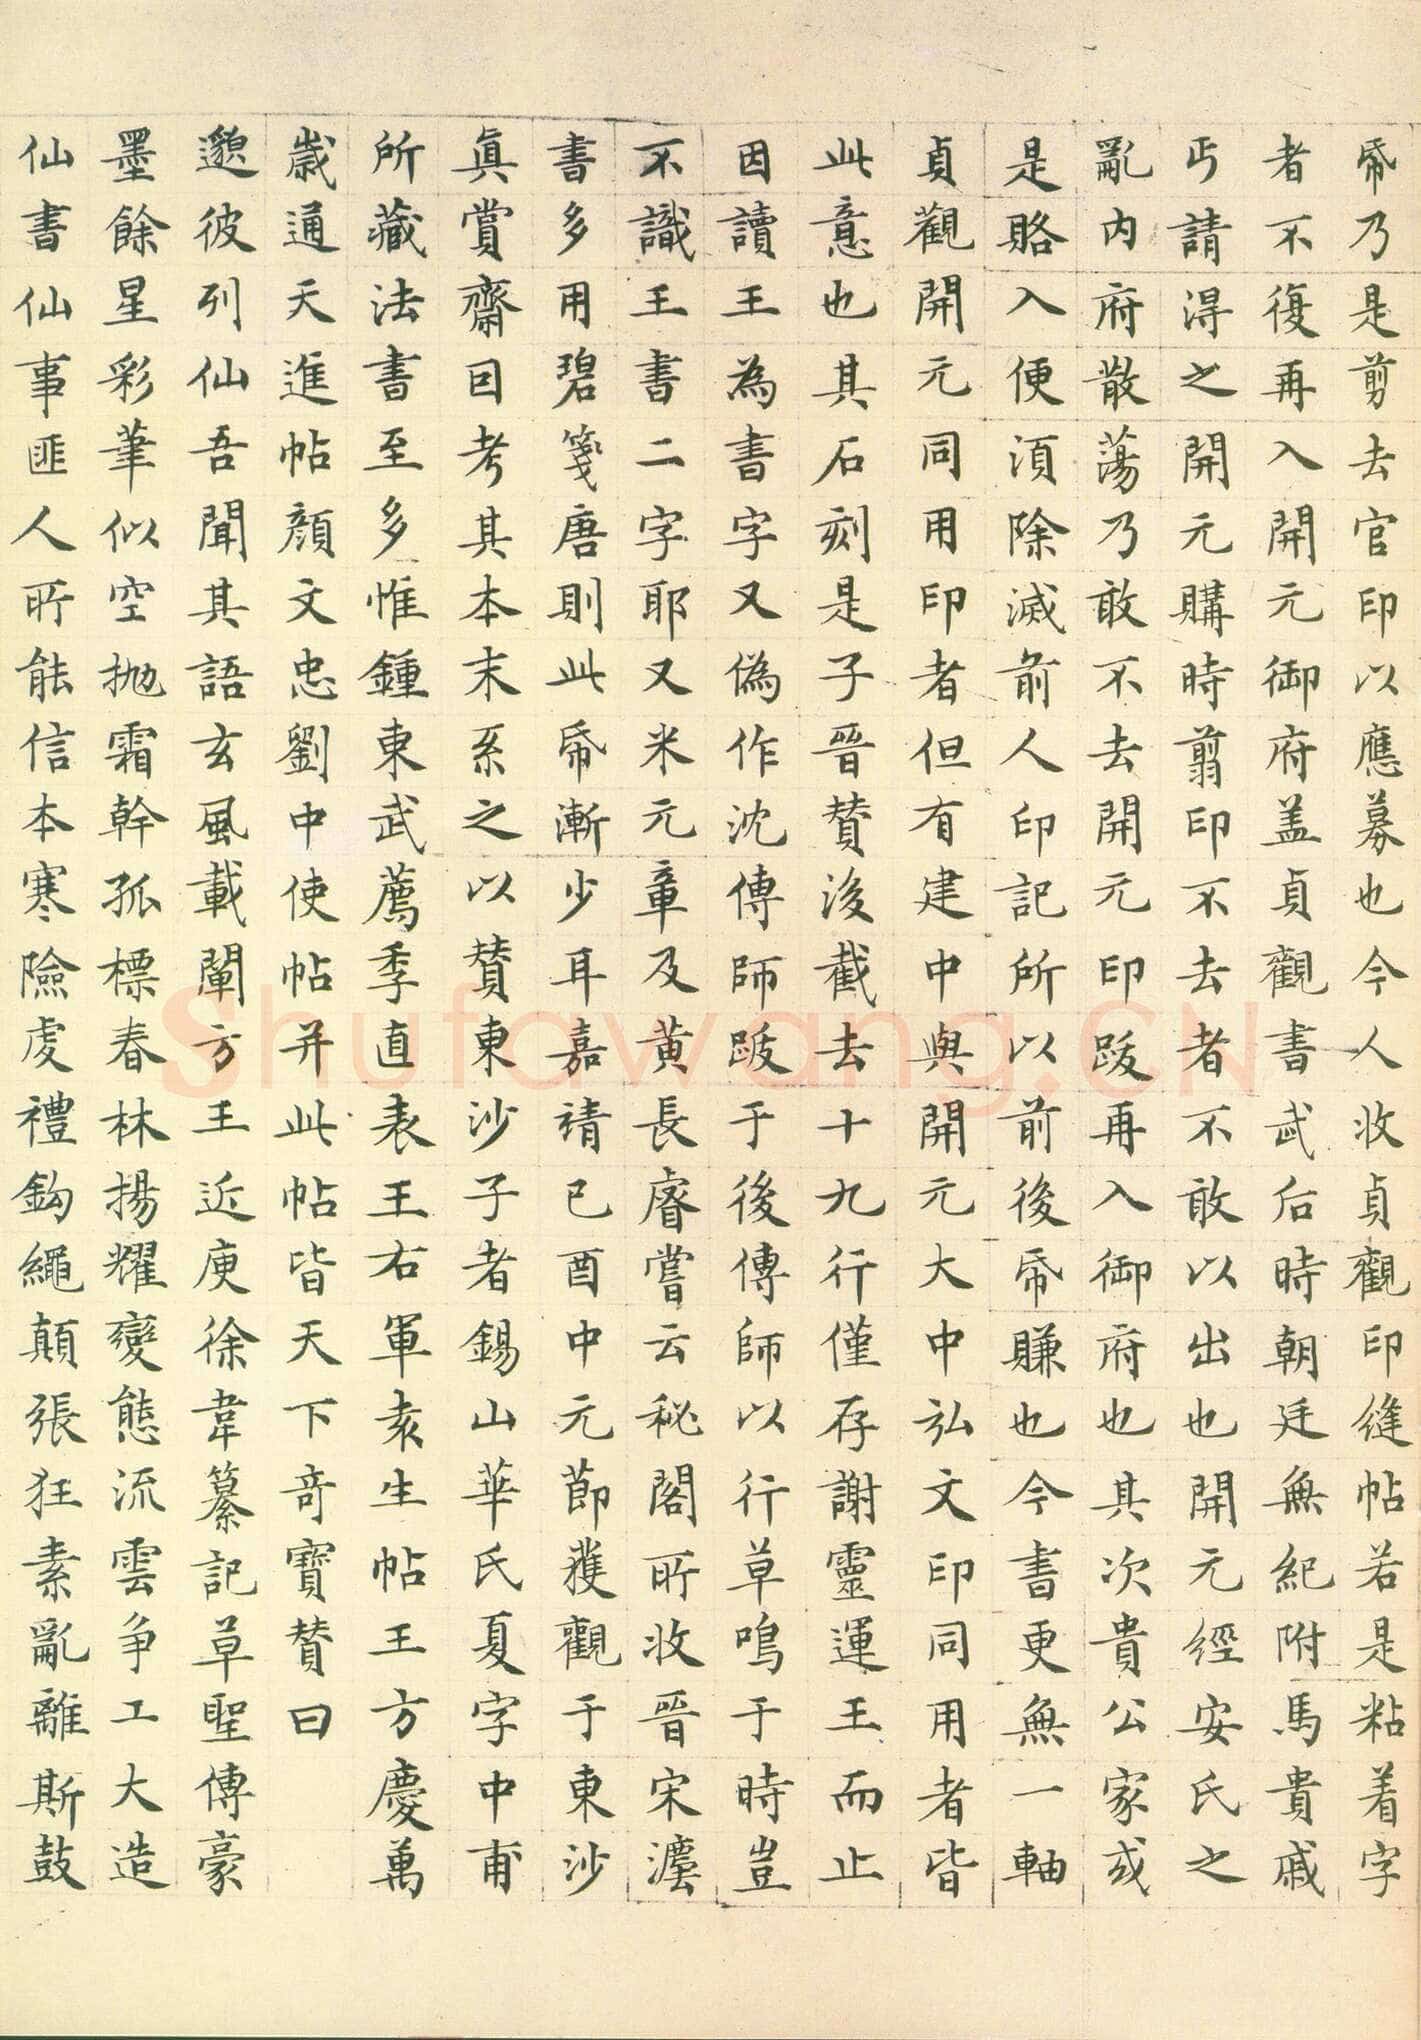 帋乃是剪去官印以應募也今人收貞觀印縫帖若是粘着字
者不復再入開元御府盖貞觀書武后時朝廷無紀附馬貴戚
丐請得之開元購時翦印不去者不敢以出也開元經安氏之
亂內府散蕩乃敢不去開元印跋再入御府也其次貴公家或
是賂入便湏除滅前人印記所以前後帋賺也今書更無一軸
貞觀開元同用印者但有建中與開元大中弘文印同用者皆
此意也其石刻是子晉賛後截去十九行僅存謝靈運王而止
因讀王為書字又偽作沈傳師跋于後傳師以行草鳴于時豈
不識王書二字耶又米元章及黄長睿嘗云秘閣所收晉宋灋
書多用碧箋唐則此帋漸少耳嘉靖已酉中元節獲觀于東沙
真賞齋因考其本末系之以賛東沙子者錫山華氏夏字中甫
所藏法書至多惟鍾東武薦季直表王右軍袁生帖王方慶萬
歲通天進帖顏文忠劉中使帖并此帖皆天下奇寶賛曰
邈彼列仙吾聞其語玄風載闡方王近庾徐韋纂記草聖傳豪
墨餘星彩筆似空抛霜幹孤標春林揚耀變態流雲争工大造
仙書仙事匪人所能信本寒險虔禮鈎繩顛張狂素亂離斯鼓
Shufawang.CN